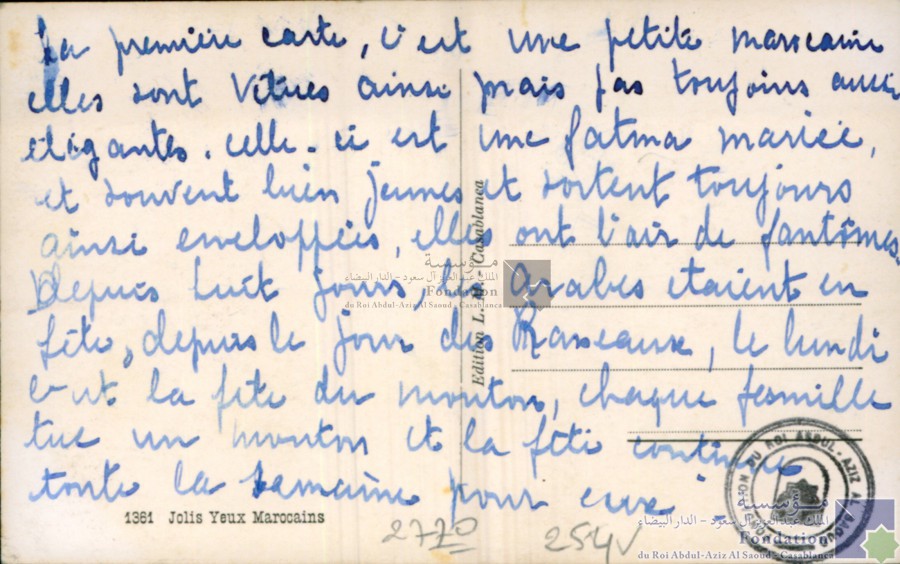 La première carte, c'est une petite marocaine
elles sont vêtues ainsi mais pas toujours aussi
élégantes. celle-ci est une fatma mariée,
et souvent bien jeunes et sortent toujours
ainsi enveloppées, elles ont l'air de fantômes.
Depuis huit jours, les Arabes etaient en
fête, depuis le jour des Rameaux, le lundi
c'est la fête du mouton, chaque famille
tue un mouton et la fête continue
toute la semaine pour eux
Edition L. M. Casablanca
1361 Jolis Yeux Marocains
2770
254
مؤسسة
الملك عبد العزيز آل سعود - الدار البيضاء
Fondation
du Roi Abdul-Aziz Al Saoud - Casablanca
FONDATION DU ROI ABDUL-AZIZ AL SAOUD
مؤسسة
الملك عبد العزيز آل سعود - الدار البيضاء
Fondation
du Roi Abdul-Aziz Al Saoud - Casablanca